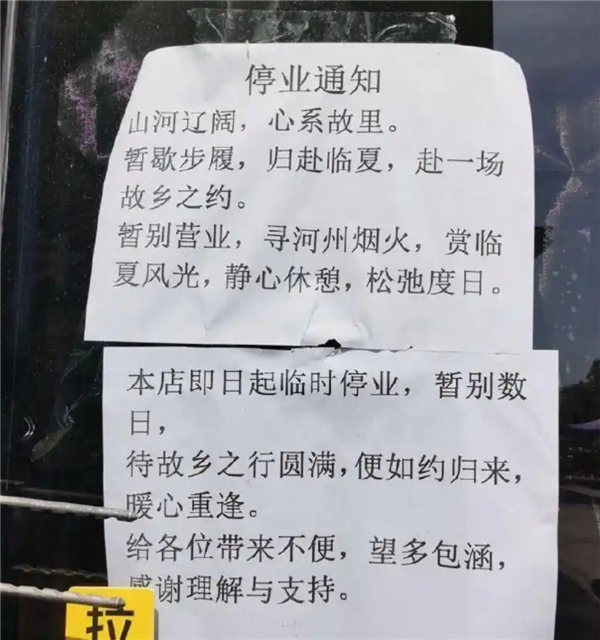 停业通知
山河辽阔，心系故里。
暂歇步履，归赴临夏，赴一场
故乡之约。
暂别营业，寻河州烟火，赏临
夏风光，静心休憩，松弛度日。
本店即日起临时停业，暂别数
日，
待故乡之行圆满，便如约归来，
暖心重逢。
给各位带来不便，望多包涵，
感谢理解与支持。
拉